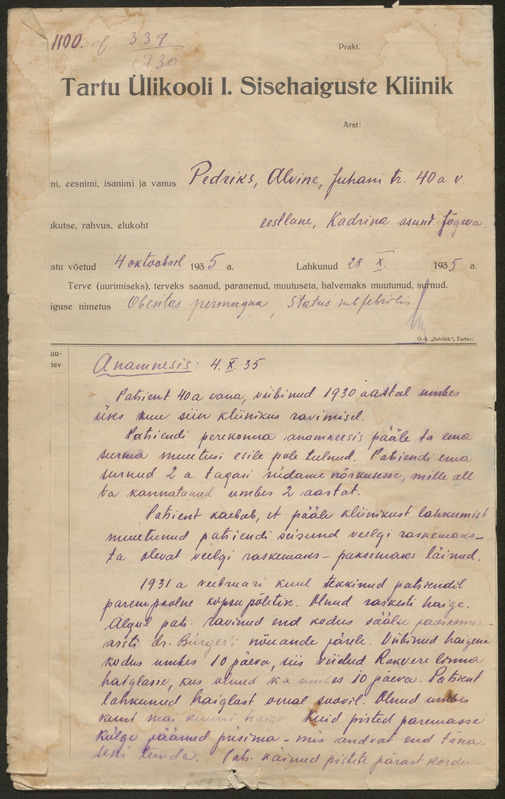 1100.
339
1930
Prakt.
Tartu Ülikooli I. Sisehaiguste Kliinik
Arst:
mi, eesnimi, isanimi ja vanus Pedriks, Alvine, Juhani tr. 40 a v.
kutse, rahvus, elukoht eestlane, Kadrina asund. Jõgeva
stu võetud 4 oktoobril 1935 a. Lahkunud 28 X. 1935 a.
Terve (uurimiseks), terveks saanud, paranenud, muutuseta, halvemaks muutunud, surnud.
iguse nimetus Obesitas permagna, Status subfebrilis
Anamnesis: 4. X. 35
Patsient 40 a vana, viibinud 1930 aastal umbes
üks kuu siin kliinikus ravimisel.
Patsiendi perekonna anamneesis pääle ta ema
surma muutusi esile pole tulnud. Patsiendi ema
surnud 2 a tagasi südame nõrkusesse, mille all
ta kannatanud umbes 2 aastat.
Patsient kaebab, et pääle kliinikust lahkumist
muutunud patsiendi seisund veelgi raskemaks-
ta olevat veelgi raskemaks - paksemaks läinud.
1931 a veebruari kuul tekkinud patsiendil
parempoolne kopsupõletik. Olnud raskesti haige.
Algul pats. ravinud end kodus säälse jaoskonna-
arsti dr. Bürger'i nõuande järele. Viibinud haigena
kodus umbes 10 päeva, siis viidud Rakvere linna
haiglasse, kus olnud ka umbes 10 päeva. Patsient
lahkunud haiglast omal soovil. Olnud umbes
kuni mai kuuni haige. Kuid pisted paremasse
külge jäänud püsima - mis andvat end täna-
seni tunda. Pats. käinud pistete pärast